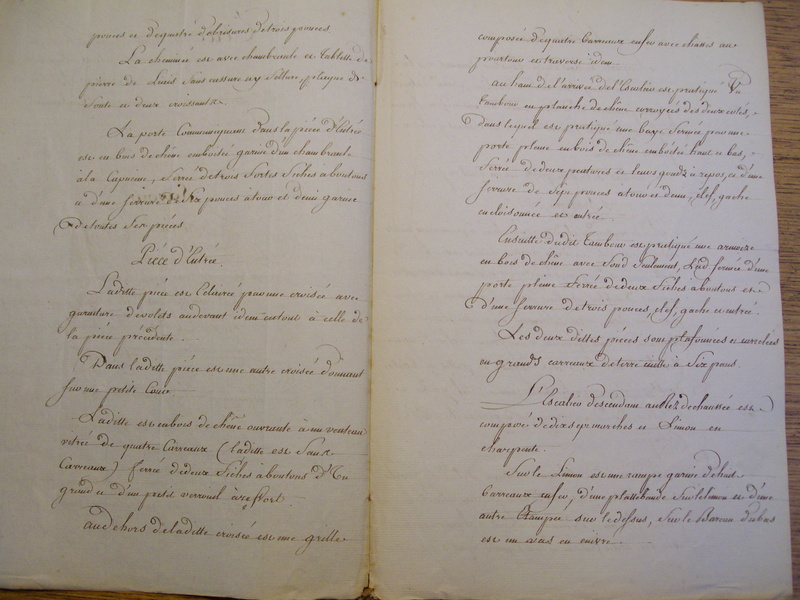 pouces et de quatre d'ebrisures de trois pouces
La cheminée est avec chambranle et tablette de
pierre de Liais sans cassure ny fellure, plaque de
fonte et deux croissants.
La porte Communiquant dans la piéce d'Entrée
est en bois de chêne emboitée garnie d'un chambranle
à la Capucine, ferrée de trois fortes fiches à boutons
et d'une serrure de six pouces à tour et demi garnie
de toutes ses piéces
Piéce d'Entrée.
Ladite piéce est Eclairée par une croisée avec
garniture de volets audevant idem en tout à celle de
la piéce précédente.
Dans ladite piéce est une autre croisée donnant
sur une petite Cour
Ladite est en bois de chêne ouvrante à un venteau
vitrée de quatre Carreaux (ladite est Sans
Carreaux) ferrée de deux fiches à boutons d'un
grand et d'un petit verrouil à ressort.
au dehors de ladite croisée est une grille
composée de quatre barreaux en fer avec chassis au
pourtour et traverse idem.
au haut de l'arrivée de l'Escalier est pratiqué Un
tambour en planche de chêne corroyées des deux cotés,
dans lequel est pratiqué une baye fermée par une
porte pleine en bois de chêne emboitée haut et bas,
ferrée de deux pentures et leurs gonds à repos, et d'une
serrure de sept pouces à tour et demi, clef, gache
encloisonnée et entrée.
Ensuitte dudit tambour est pratiqué une armoire
en bois de chêne avec fond seulement, Lad. fermée d'une
porte pleine ferrée de deux fiches à boutons et
d'une serrure de trois pouces, clef, gache et entrée.
Les deux dittes piéces sont plafonnées et carrelées
en grands carreaux de terre cuitte à six pans.
L'Escalier descendant au Rez de chaussée est
composé de marches et Limon en
charpente.
Sur le Limon est une rampe garnie de huit
barreaux en fer, d'une plattebande sur le limon et d'une
autre Etampée sur le dessus, sur le Barreau d'en bas
est un vase en cuivre.